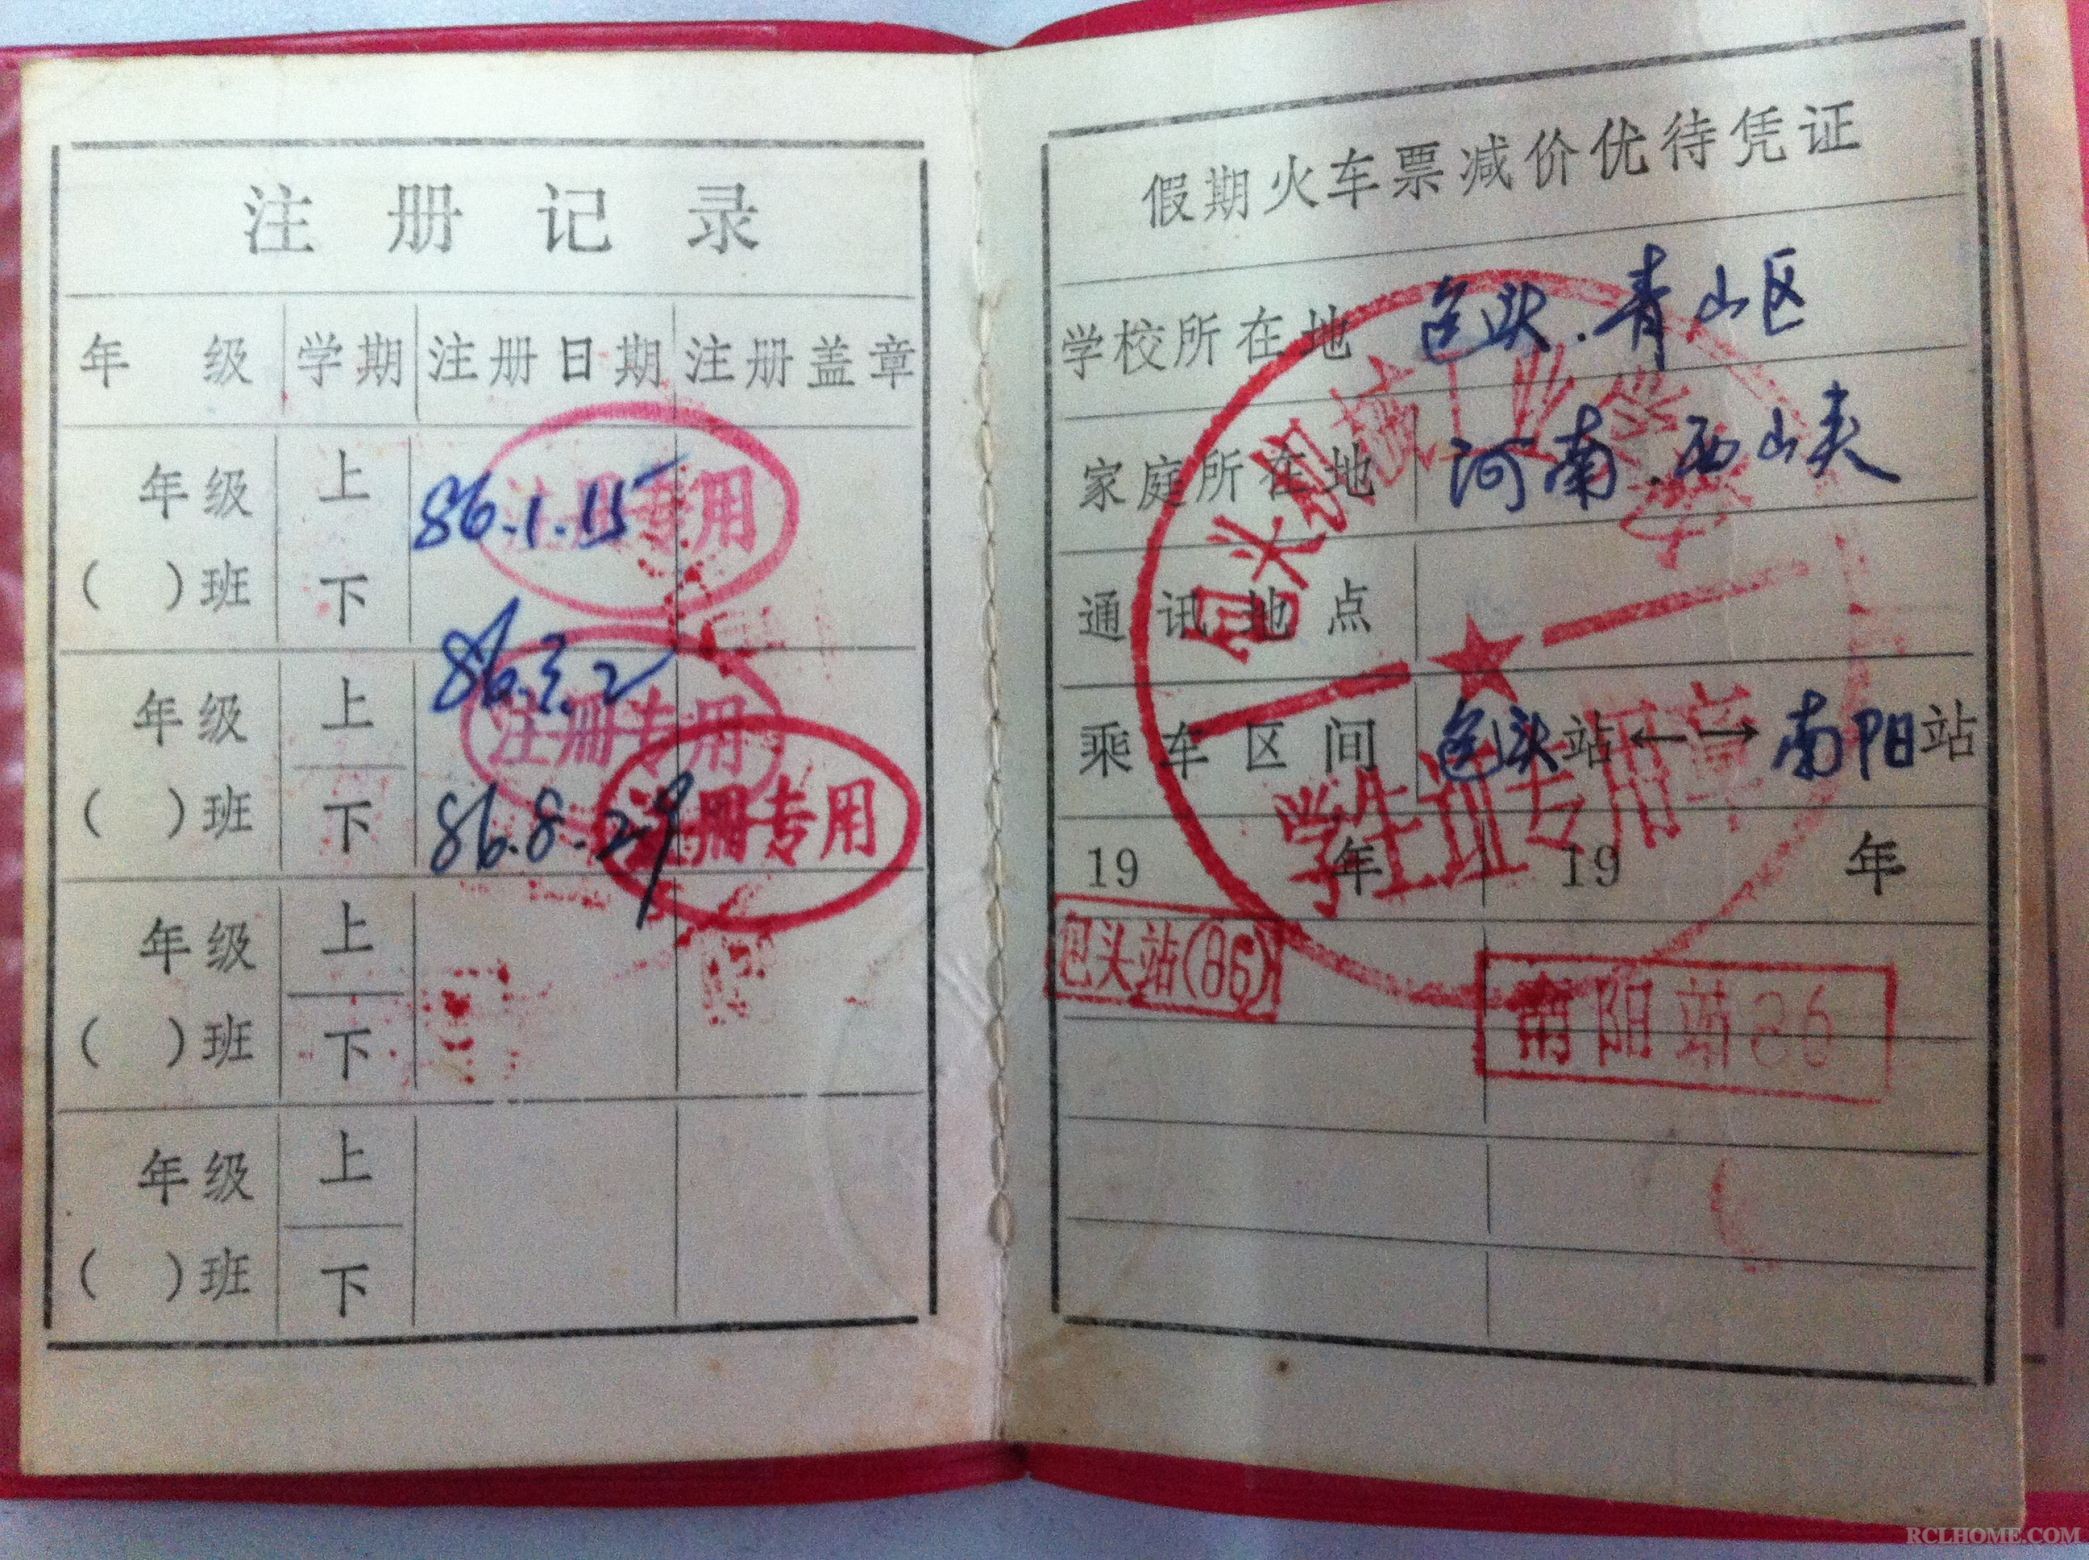 注册记录
年级 学期 注册日期 注册盖章
年级 上 86.1.15 注册专用
( )班 下
86.3.2
年级 上 注册专用
( )班 下 86.8.29 注册专用
年级 上
( )班 下
年级 上
( )班 下
假期火车票减价优待凭证
学校所在地 包头.青山区
家庭所在地 河南.西峡
通讯地点
乘车区间 包头站←→南阳站
19 年 19 年
包头机械工业学校
学生证专用章
包头站(86)
南阳站86
RCLHOME.COM